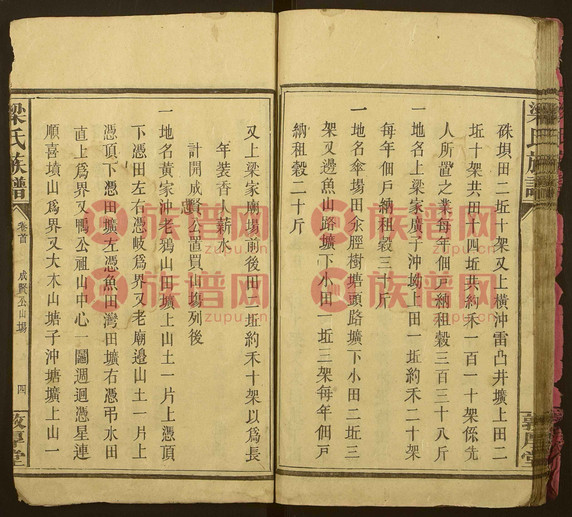 硃垻田二坵十架又上橫沖雷凸井壙上田二
坵十架共田十四坵共約禾一百一十架係先
人所置之業每年個戸納租穀三百三十八斤
一地名上梁家廣子沖坳上田一坵約禾二十架
每年個戸納租穀三十斤
一地名傘塲田佘脛樹塘頭路壙下小田二坵三
架又邊魚山路壙下小田一坵三架每年個戸
納租穀二十斤
梁氏族譜
敦厚堂
又上梁家廟塲前後田一坵約禾十架以爲長
年裝香薪水
計開成賢公置買山塲列後
一地名黃家沖老鴉山田壙上山土一片上憑頂
下憑田左右憑岐爲界又老廟邉山土一片上
憑頂下憑田壙左憑魚田灣田壙右憑弔水田
直上爲界又鴨公祖山中心一圖週迴憑星連
順喜墳山爲界又大木山塘子沖塘壙上山一
梁氏族譜
卷首
成賢公山塲
四
敦厚堂
族谱网
zupu.cn
族谱网
zupu.cn
族谱网
zupu.cn
族谱网
zupu.cn